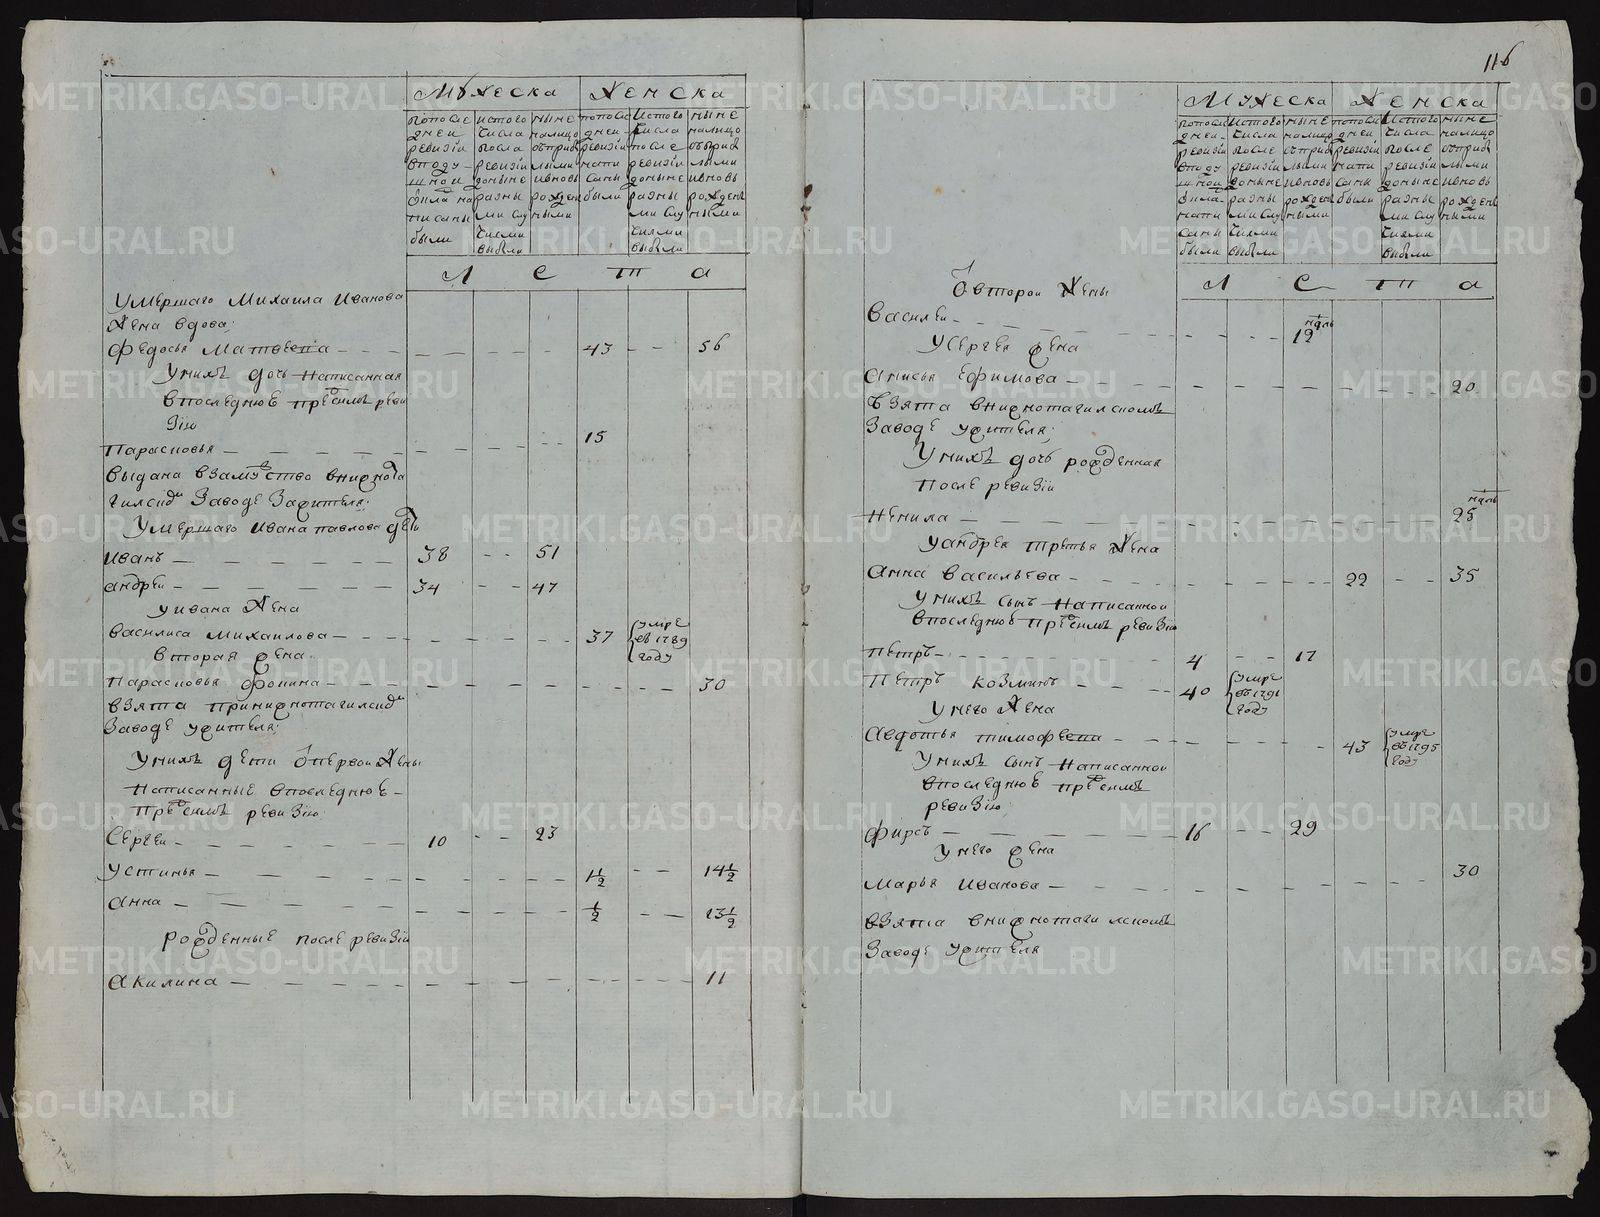 116
Мужеска Женска
попослѣ дней ревизіи вподушной была написаны были
истого числа после ревизіи доныне разны ми случиями выбыли
ныне налицо съприбылыми ивновь рожденными
попослѣдней ревизіи написаны были
истого числа после ревизіи доныне разны ми случиями выбыли
ныне налицо съприбылыми ивновь рожденными
Л Е Т А
Умершаго Михаила Иванова
жена вдова;
Федосья Матвеева 43 56
У нихъ дочь написанная
впоследнюю пред симъ реви
зію
Парасковья 15
выдана взамуство внижнота
гилскомъ заводе зажителя;
Умершаго Ивана Павлова дѣти
Иванъ 38 51
Андреи 34 47
у Ивана жена
Василиса Михаилова 37 умре въ 1789 году
вторая жена
Парасковья Фокина 30
взята принижнотагилскомъ
заводе ужителя;
У нихъ дети отпервои жены
написанные впоследнюю
пред симъ ревизію
Сергеи 10 23
Устинья 1½ 14½
Анна ½ 13½
рожденные после ревизіи
Акилина 11
Мужеска Женска
попослѣдней ревизіи вподушной была написаны были
истого числа после ревизіи доныне разны ми случиями выбыли
ныне налицо съприбылыми ивновь рожденными
попослѣдней ревизіи написаны были
истого числа после ревизіи доныне разны ми случиями выбыли
ныне налицо съприбылыми ивновь рожденными
Л Е Т А
отвторои жены
Василеи 12 недѣль
У Сергея жена
Анисья Ефимова 20
взята внижнотагилскомъ
заводе ужителя;
У нихъ дочь рожденная
после ревизіи
Ненила 25 недѣль
У Андрея третья жена
Анна Васильева 22 35
У нихъ сынъ написанной
впоследнюю пред симъ ревизію
Петръ 4 17
Петръ Козминъ 40 умре въ 1791 году
У него жена
Авдотья Тимофеева 43 умре въ 1795 году
У нихъ сынъ написанной
впоследнюю пред симъ
ревизію
Фирсъ 16 29
У него жена
Марья Иванова 30
взята внижнотагилскомъ
заводе ужителя
METRIKI.GASO-URAL.RU